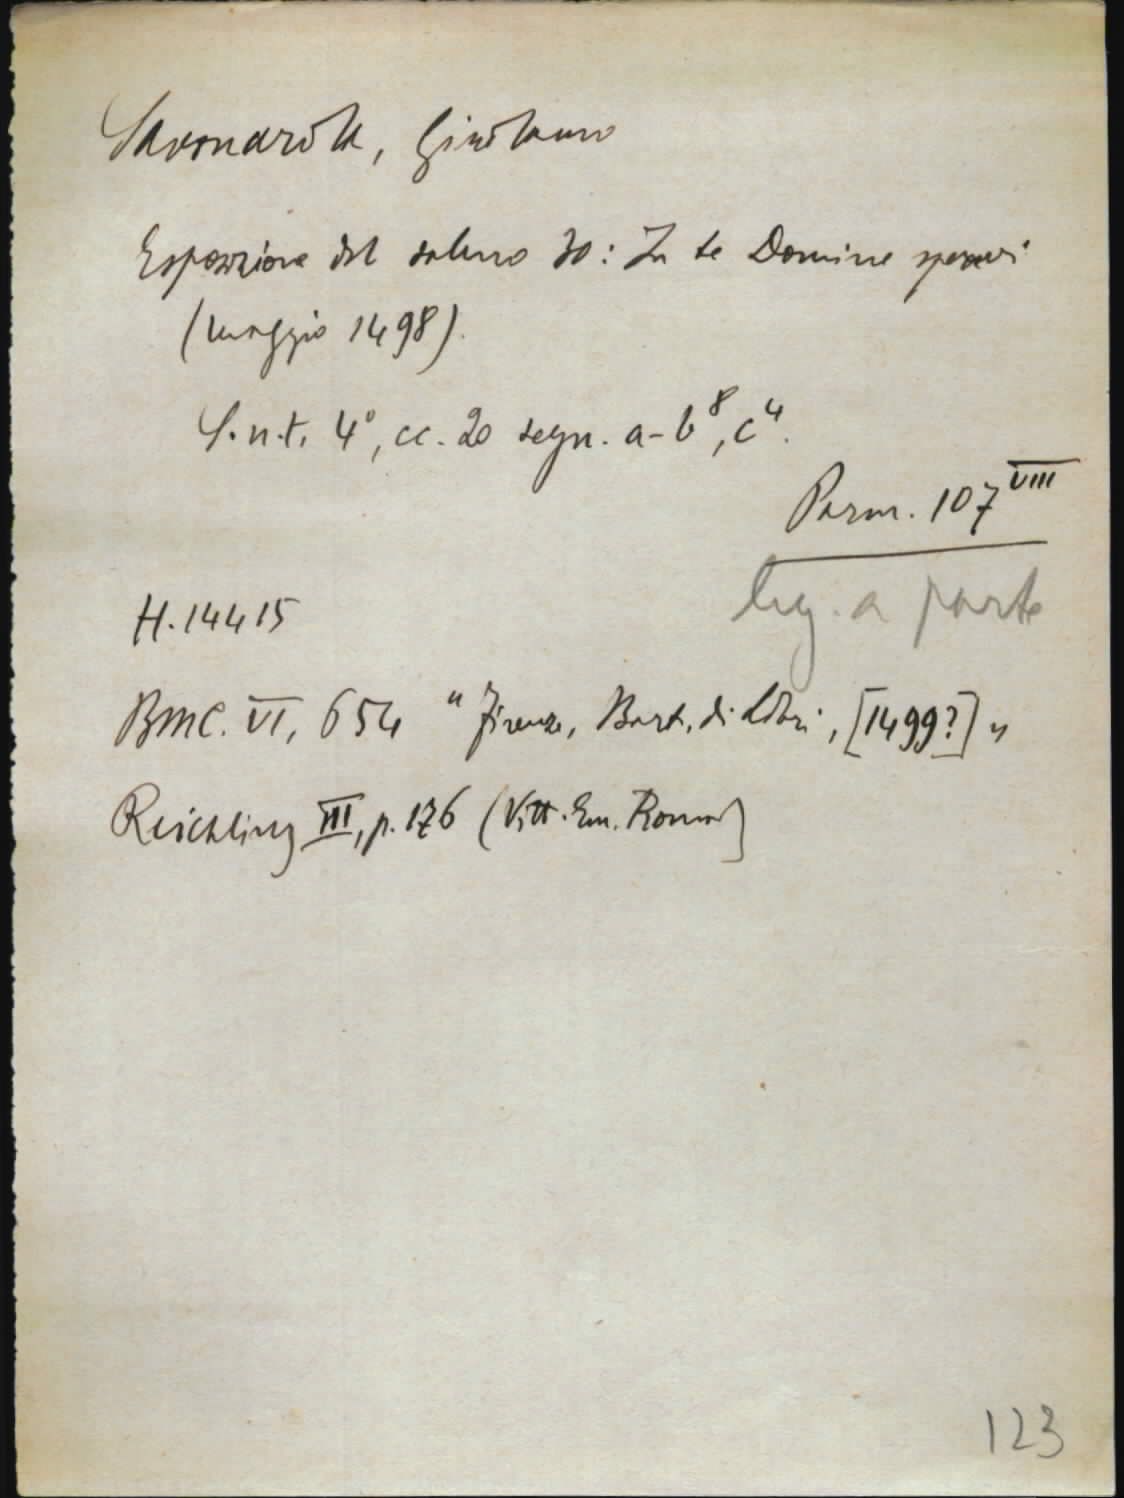 Savonarola, Girolamo
Esposizione del salmo 30: In te Domine speravi
(maggio 1498).
S.n.t. 4°, cc. 20 segn. a-b⁸, c⁴.
Parm. 107 VIII
leg. a parte
H. 14415
BMC. VI, 654 "Firenze, Bart. di Libri, [1499?]"
Reichling III, p. 176 (Vitt. Em. Roma)
123